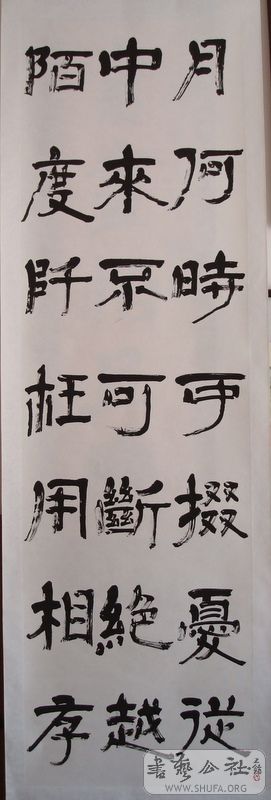 月何時可掇憂從
中來不可斷絕越
陌度阡枉用相存
書藝公社
WWW.SHUFA.ORG